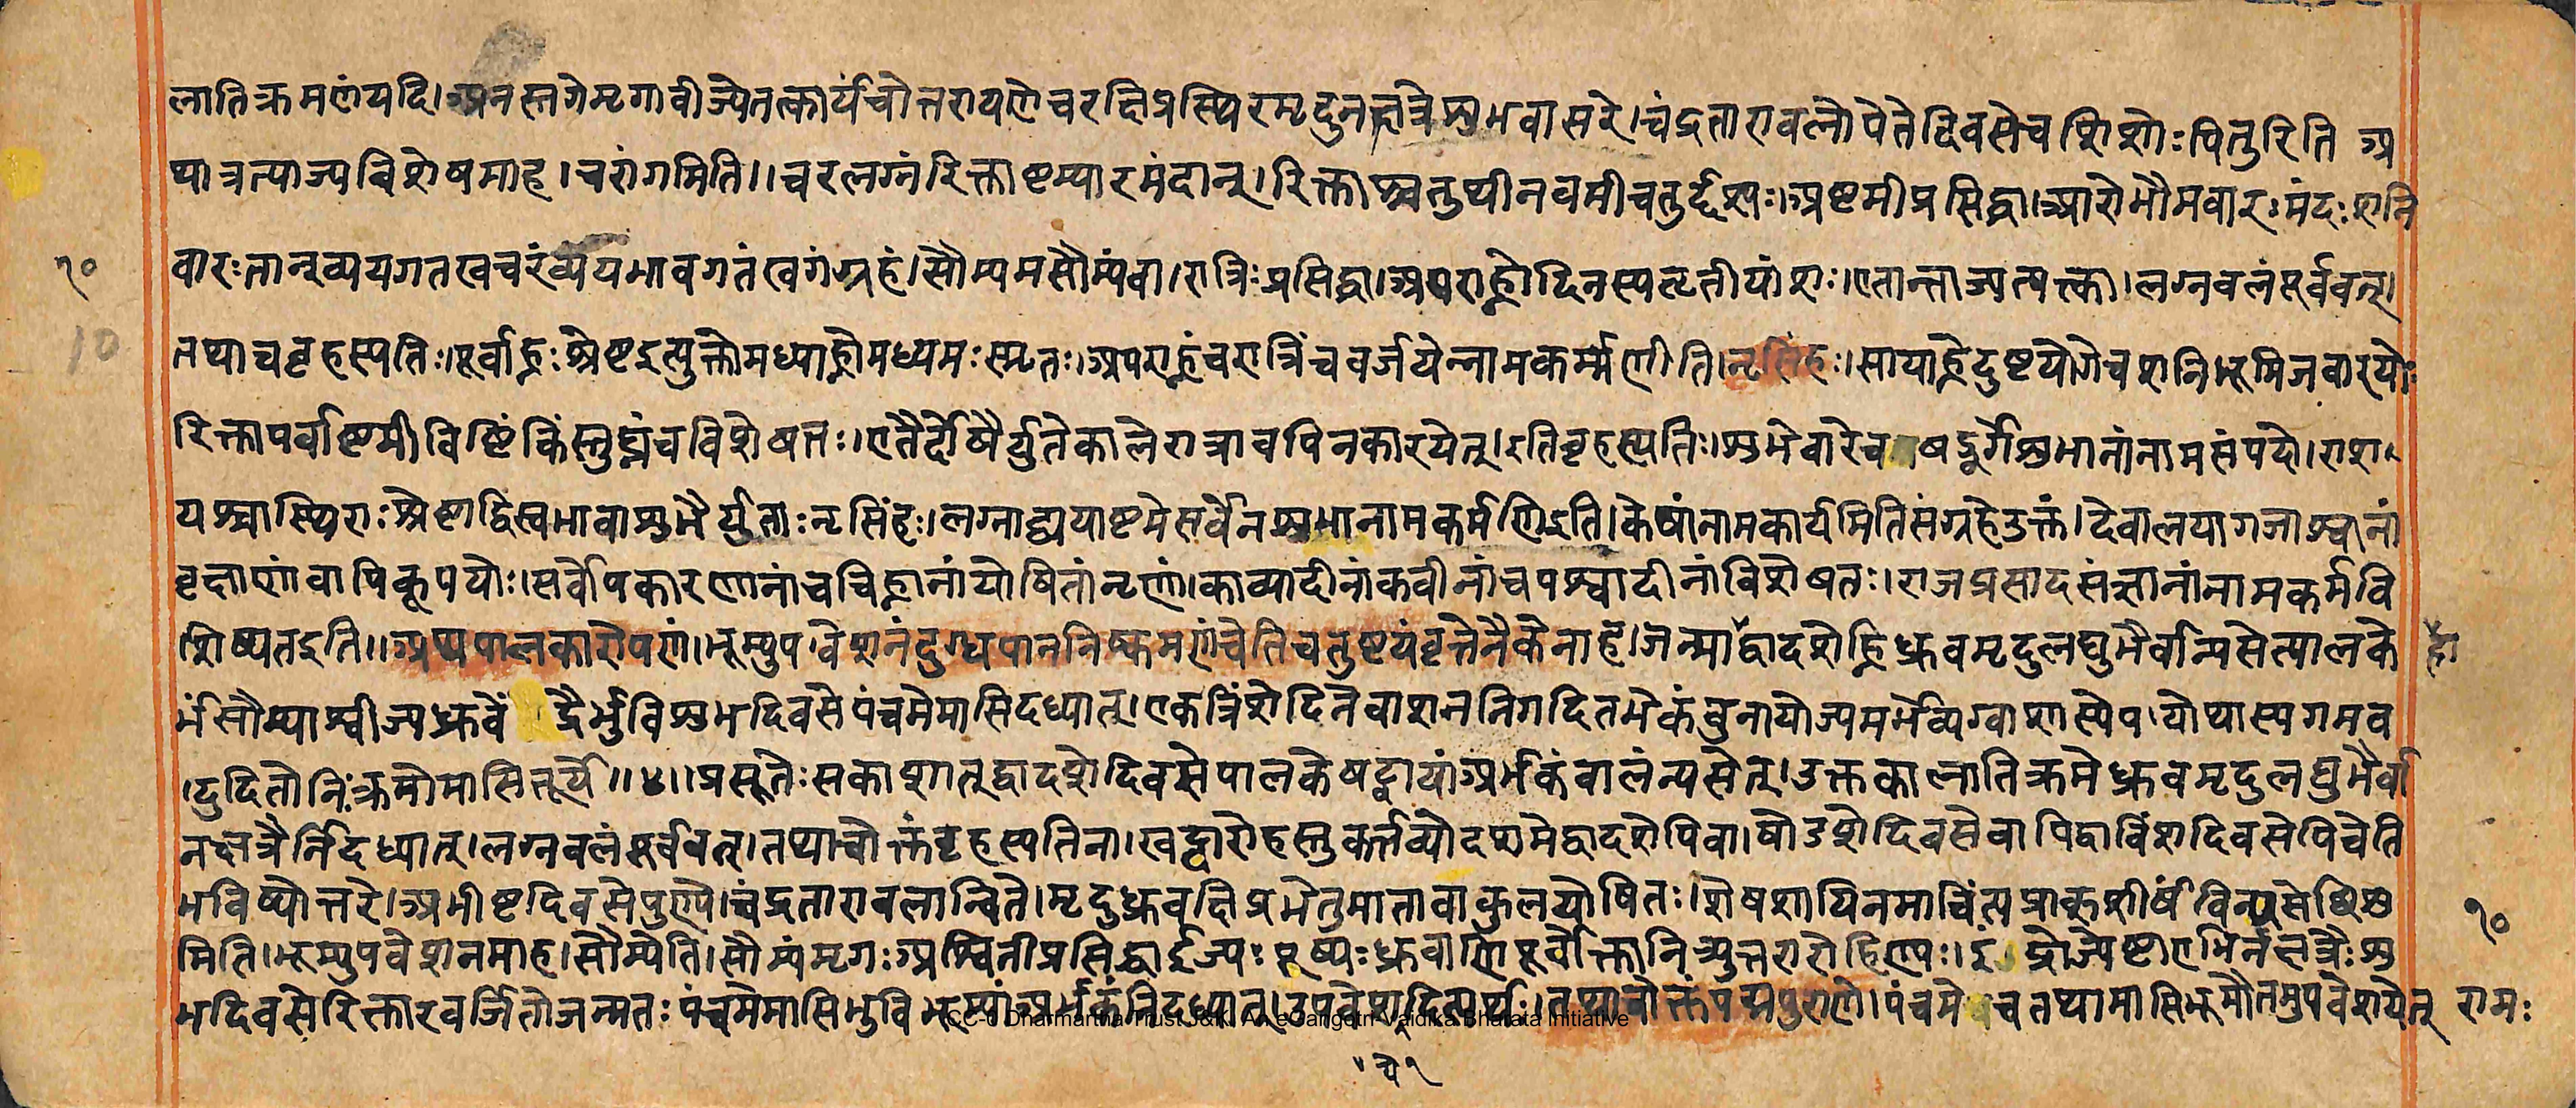 लातिक्रमणंयदि।अनस्तगेभृगावीज्येतत्कार्यंचोत्तरायणेचरक्षिप्रस्थिरमृदुनक्षत्रेशुभवासरे।चंद्रताराबलोपेतेदिवसेचशिशोःपितुरिति अ
थात्रत्याज्यविशेषमाह।चरांगमिति॥चरलग्नंरिक्ताष्टम्यारमंदान्।रिक्ताश्चतुर्थीनवमीचतुर्दश्यः।अष्टमीप्रसिद्धा।आरोभौमवारःमंदःशनि
१०
वारःतान्व्ययगतखचरंव्ययभावगतंखगंग्रहं।सौम्यमसौम्यंवा।रात्रिःप्रसिद्धा।अपराह्णोदिनस्यतृतीयांशः।एतान्त्याज्यत्यक्त्वा।लग्नबलंपूर्ववत्।
10
तथाचबृहस्पतिः।पूर्वाह्णःश्रेष्टइत्युक्तोमध्याह्नोमध्यमःस्मृतः।अपराह्णंचरात्रिंचवर्जयेन्नामकर्म्मणीति।नृसिंहः।सायाह्नेदुष्टयोगेचशनिभूमिजवारयोः
रिक्तापर्वाष्टमीविष्टिंकिंस्तुघ्नंचविशेषतः।एतैर्दोषैर्युतेकालेरात्रावपिनकारयेत्।इतिबृहस्पतिः।शुभेवारेचषड्वर्गेशुभानांनामसंपदे।राश
यश्चास्थिराःश्रेष्टाद्विस्वभावाशुभैर्युताःनृसिंहः।लग्नाद्व्ययाष्टमेसर्वेनशुभानामकर्मणिइति।केषांनामकार्यमितिसंग्रहेउक्तं।देवालयागजाश्चानां
वृक्षाणांवापिकूपयोः।सर्वोपकारणानांचचिह्नानांयोषितांनृणां।काव्यादीनांकवीनांचपश्वादीनांविशेषतः।राजप्रसादसंज्ञानांनामकर्मवि
शिष्यतइति॥अथपालकारोपणं।भूम्युपवेशनंदुग्धपाननिष्क्रमणंचेतिचतुष्टयंवृत्तेनैकेनाह।जन्माद्वादशेह्निध्रुवमृदुलघुभैर्वान्यसेत्पालके
र्भंसौम्याश्वीज्यध्रुवेंद्रैर्भुविशुभदिवसेपंचमेमासिदध्यात्।एकत्रिंशेदिनेवाशननिगदितभेकंबुनायोज्यमर्भेव्यग्वाशास्येप।योथास्यगमव
दुदितोनिःक्रमोमासितूर्ये॥४॥प्रसूतेःसकाशात्द्वादशेदिवसेपालकेषट्वायांअर्भकंबालंन्यसेत्।उक्तकालातिक्रमेध्रुवमृदुलघुभैर्वा
नक्षत्रैर्निदध्यात्।लग्नबलंपूर्ववत्।तथाचोक्तंबृहस्पतिना।खट्वारोहस्तुकर्त्तव्योदशमेद्वादशेपिवा।षोडशेदिवसेवापिद्वाविंशदिवसेपिचेति
भविष्योत्तरे।अभीष्टदिवसेपुण्ये।चंद्रताराबलान्विते।मृदुध्रुवक्षिप्रभेतुमातावाकुलयोषितः।शेषशायिनमाचिंत्यप्राक्शीर्षंविन्यसेच्छिशु
१०
मिति।भूम्युपवेशनमाह।सौम्येति।सौम्यंमृगःअश्विनीप्रसिद्धाईज्यःपुष्यःध्रुवाणिपूर्वोक्तानित्र्युत्तरारोहिण्यः।इंद्रोज्येष्टाएभिर्नक्षत्रैःशु
भदिवसेरिक्तारवर्जितोजन्मतःपंचमेमासिभुविभूम्यांअर्भकंनिदध्यात्।उपवेशयेदित्यर्थः।तथाचोक्तंपद्मपुराणे।पंचमेचतथामासिभूमौतमुपवेशयेत् रामः
CC-0 Dharmartha Trust J&K. An eGangotri-Vaidika Bharata Initiative